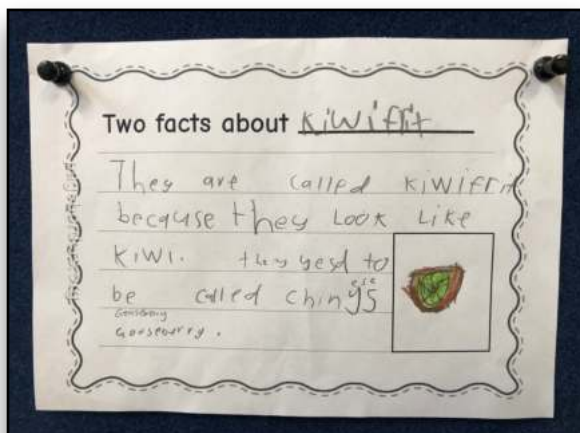 Two facts about kiwifrit
They are called kiwifrit
because they Look Like
kiwi. they yesd to
be called chin
Gooseberry.